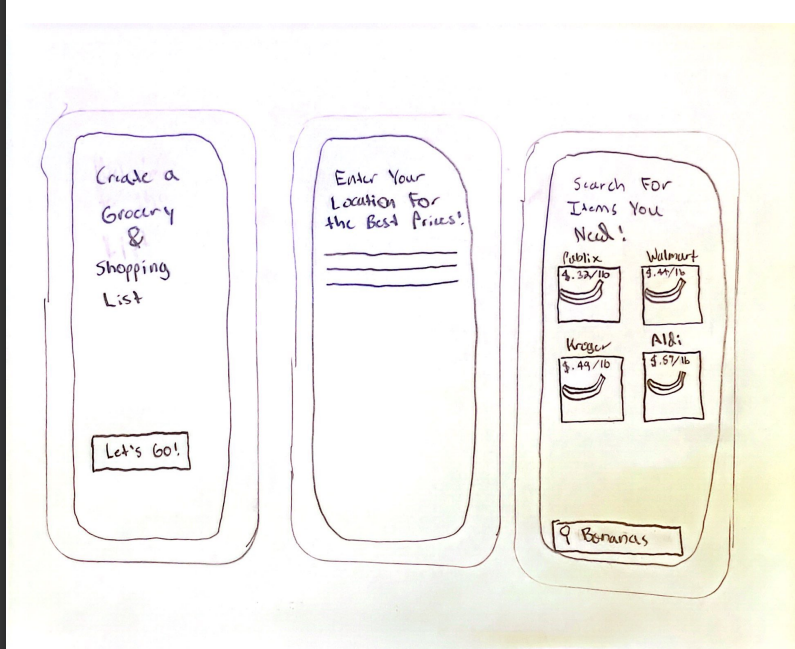 Create a
Grocery
&
Shopping
List
Let's Go!
Enter Your
Location For
the Best Prices!
Search For
Items You
Need!
Publix
Walmart
$.32/lb
$.44/lb
Kroger
Aldi
$.49/lb
$.57/lb
Bananas